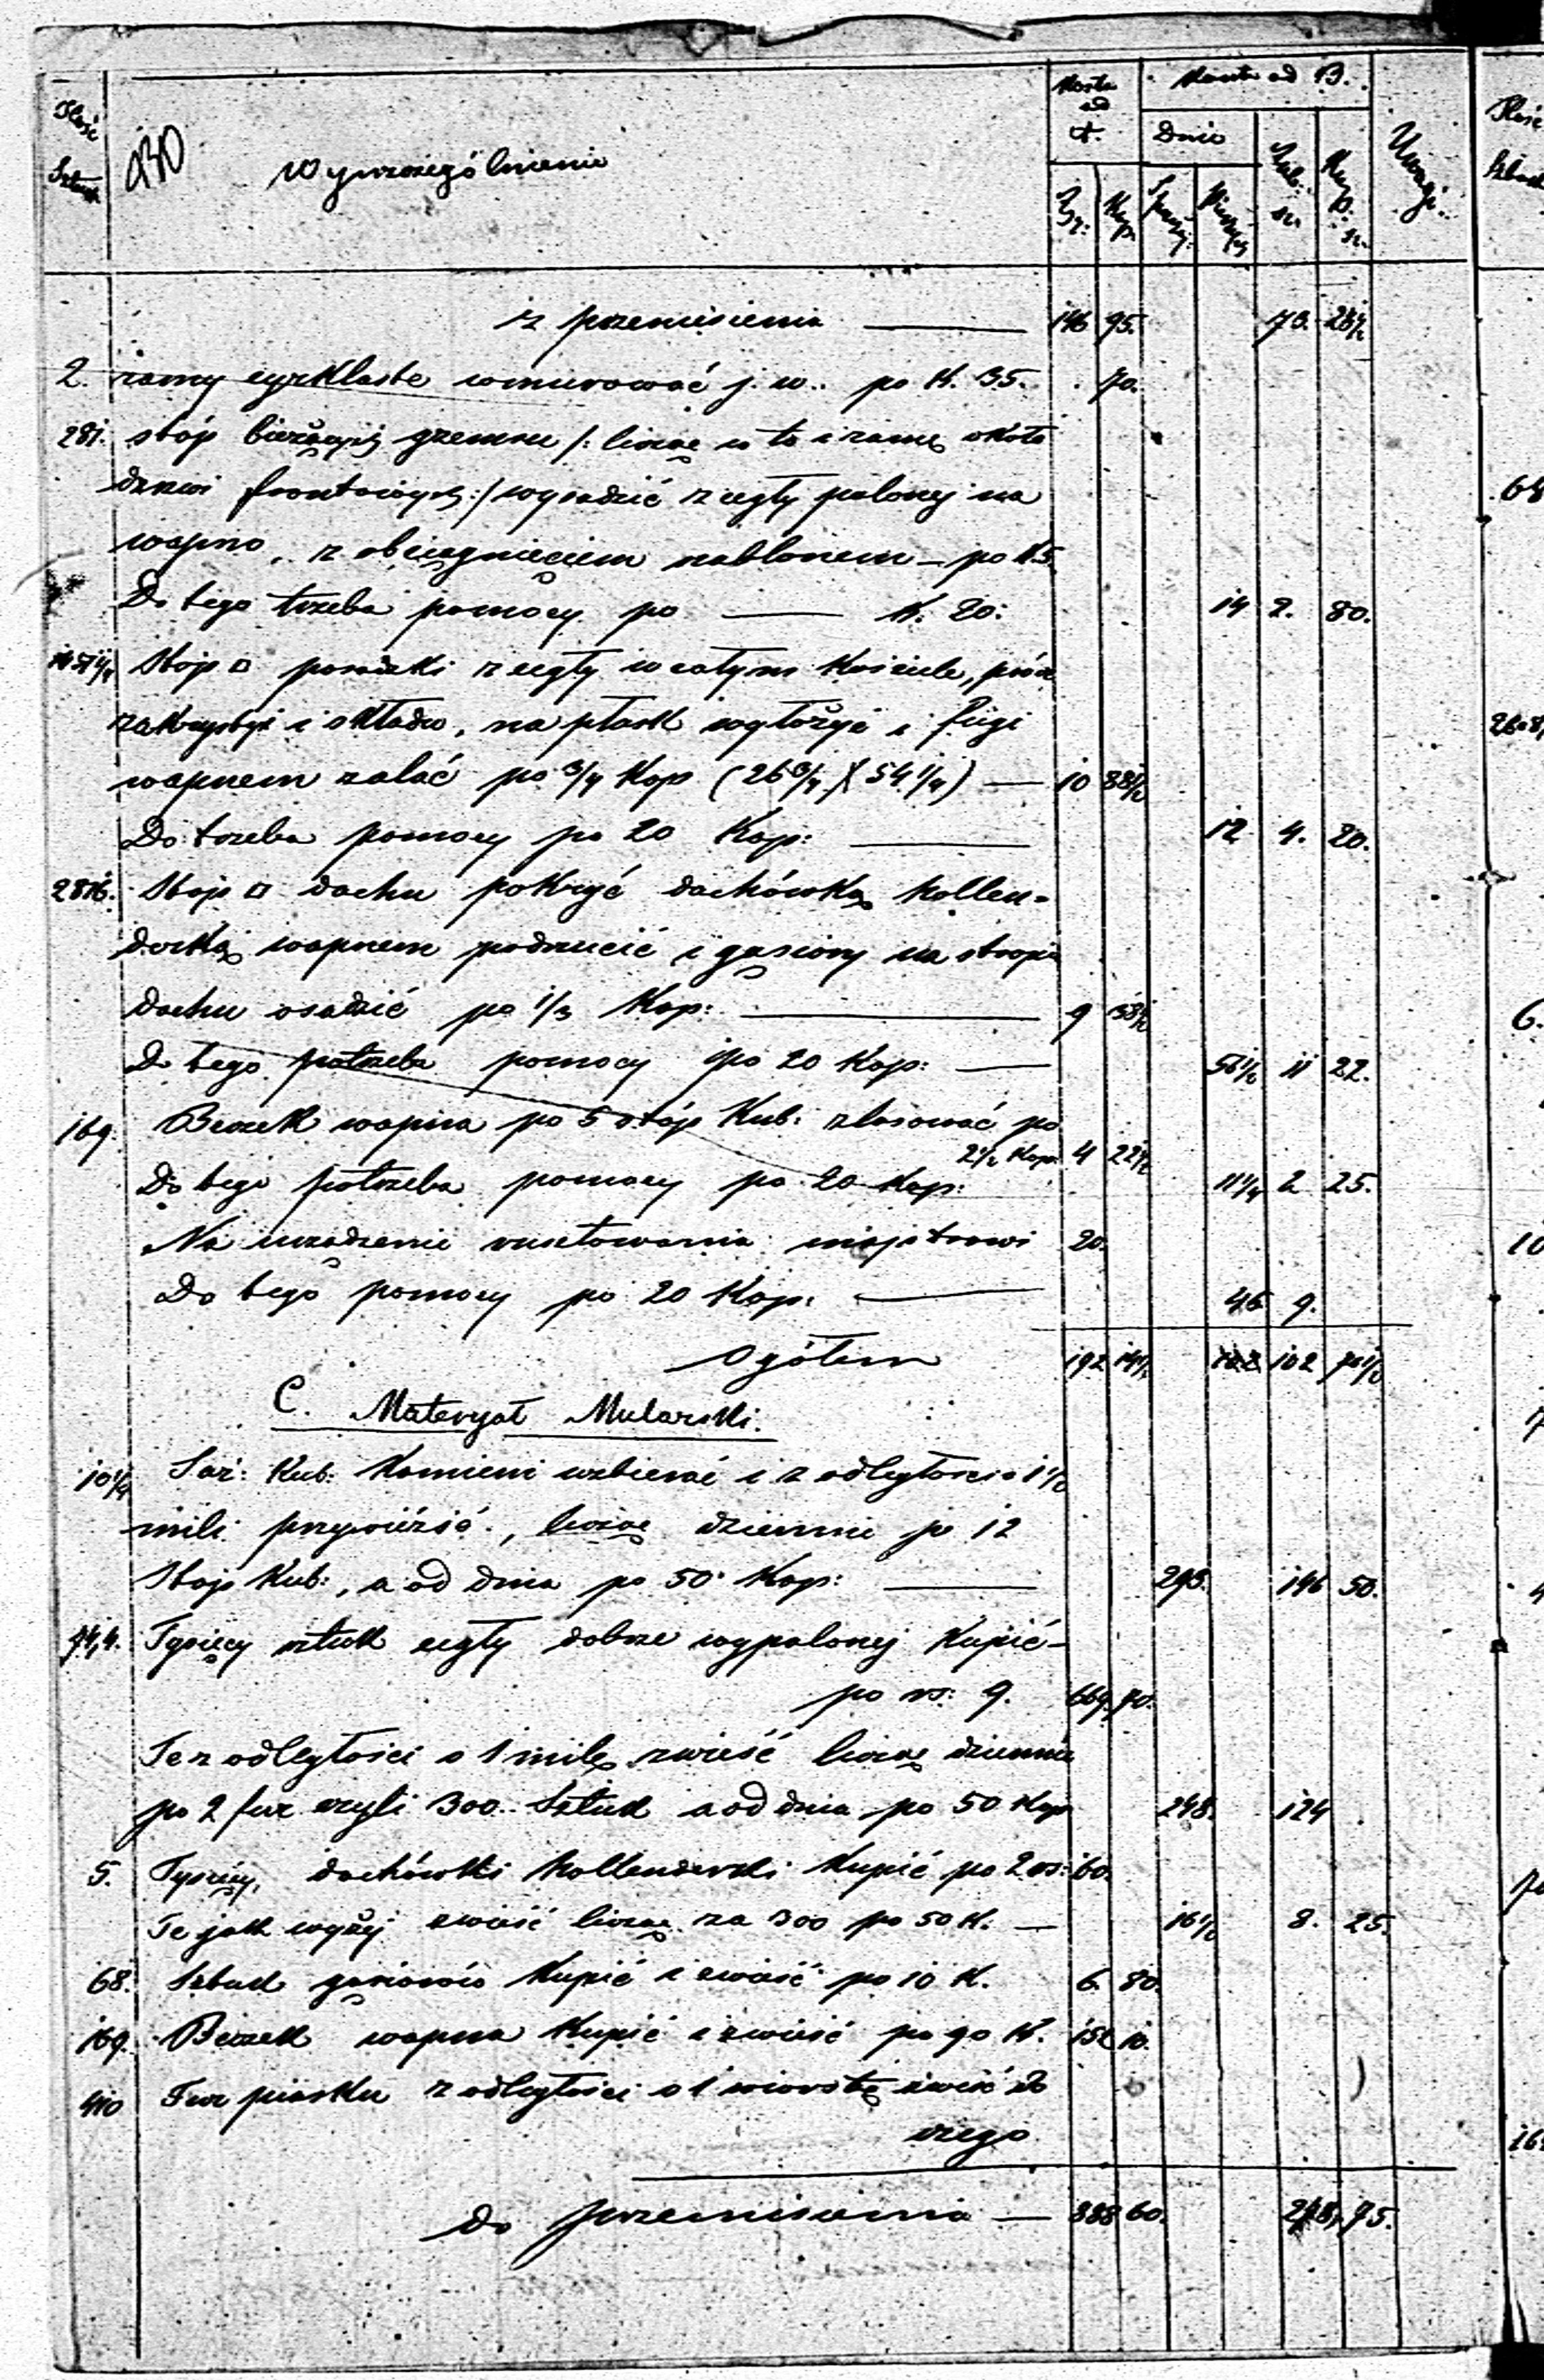 Ilość Sztuk
Wyszczególnienie
Koszta od A.
Koszta od B.
Uwagi.
Dnie
Kop.
z przeniesienia — 146 95. 73. 28 1/2
2. ramy cyrklaste wmurować j. w. po K. 35. 70.
281. stóp bieżących gzemsu /: licząc w to i ramę około
drzwi frontowych :/ wysadzić z cegły palonej na
wapno, z obciągnięciem szablonem — po K 5.
Do tego trzeba pomocy po — K. 20. 14 2. 80.
1451 1/4 Stóp □ posadzki z cegły w całym Kościele, prócz
zakrystyi i składu, na płask wyłożyć i fugi
wapnem zalać po 3/4 Kop. (26 3/4 X 54 1/4) — 10 88 1/2
Do trzeba pomocy po 20 Kop: — 12 4. 20.
2816. Stóp □ dachu pokryć dachówką hollen-
derską wapnem podrzucić i gąsiory na stropie
dachu osadzić po 1/3 Kop: — 9 38 1/2
Do tego potrzeba pomocy po 20 Kop: — 56 1/2 11 22.
169. Beczek wapna po 5 stóp Kub: zlasować po
2 1/2 Kop. 4 22 1/2
Do tego potrzeba pomocy po 20 Kop: 11 1/4 2 25.
Na urządzenie rusztowania majstrowi 20.
Do tego pomocy po 20 Kop. — 45 9.
Ogółem 192 14 1/2 102 70 1/2
C. Materyał Mularski.
10 1/4 Saż: Kub: Kamieni uzbierać i z odległości o 1 1/2
mili przywieźść, licząc dziennie po 12
Stóp Kub:, a od dnia po 50 Kop: — 293. 146 50.
74,4. Tysięcy sztuk cegły dobrze wypalonej Kupić —
po rs: 9. 669. 70.
Te z odległości o 1 milę zwieść licząc dziennie
po 2 fur czyli 300 Sztuk a od dnia po 50 Kop 248. 124
5. Tysięcy dachówki hollenderski Kupić po 60.
Te jak wyżej zwieść licząc za 300 po 50 K. — 16 1/2 8. 25.
68. Sztuk gąsiorów Kupić i zwieść po 10 K. 6. 80.
169. Beczek wapna Kupić i zwieść po 90 K. 152 10.
410 Fur piasku z odległości o 1 wiorstę zwieść do
czego
do przeniesienia — 888 60. 278, 75.